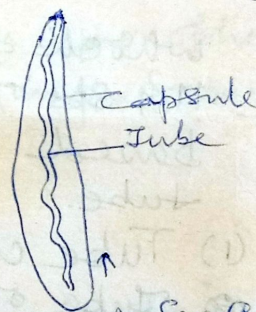 Capsule
Tube